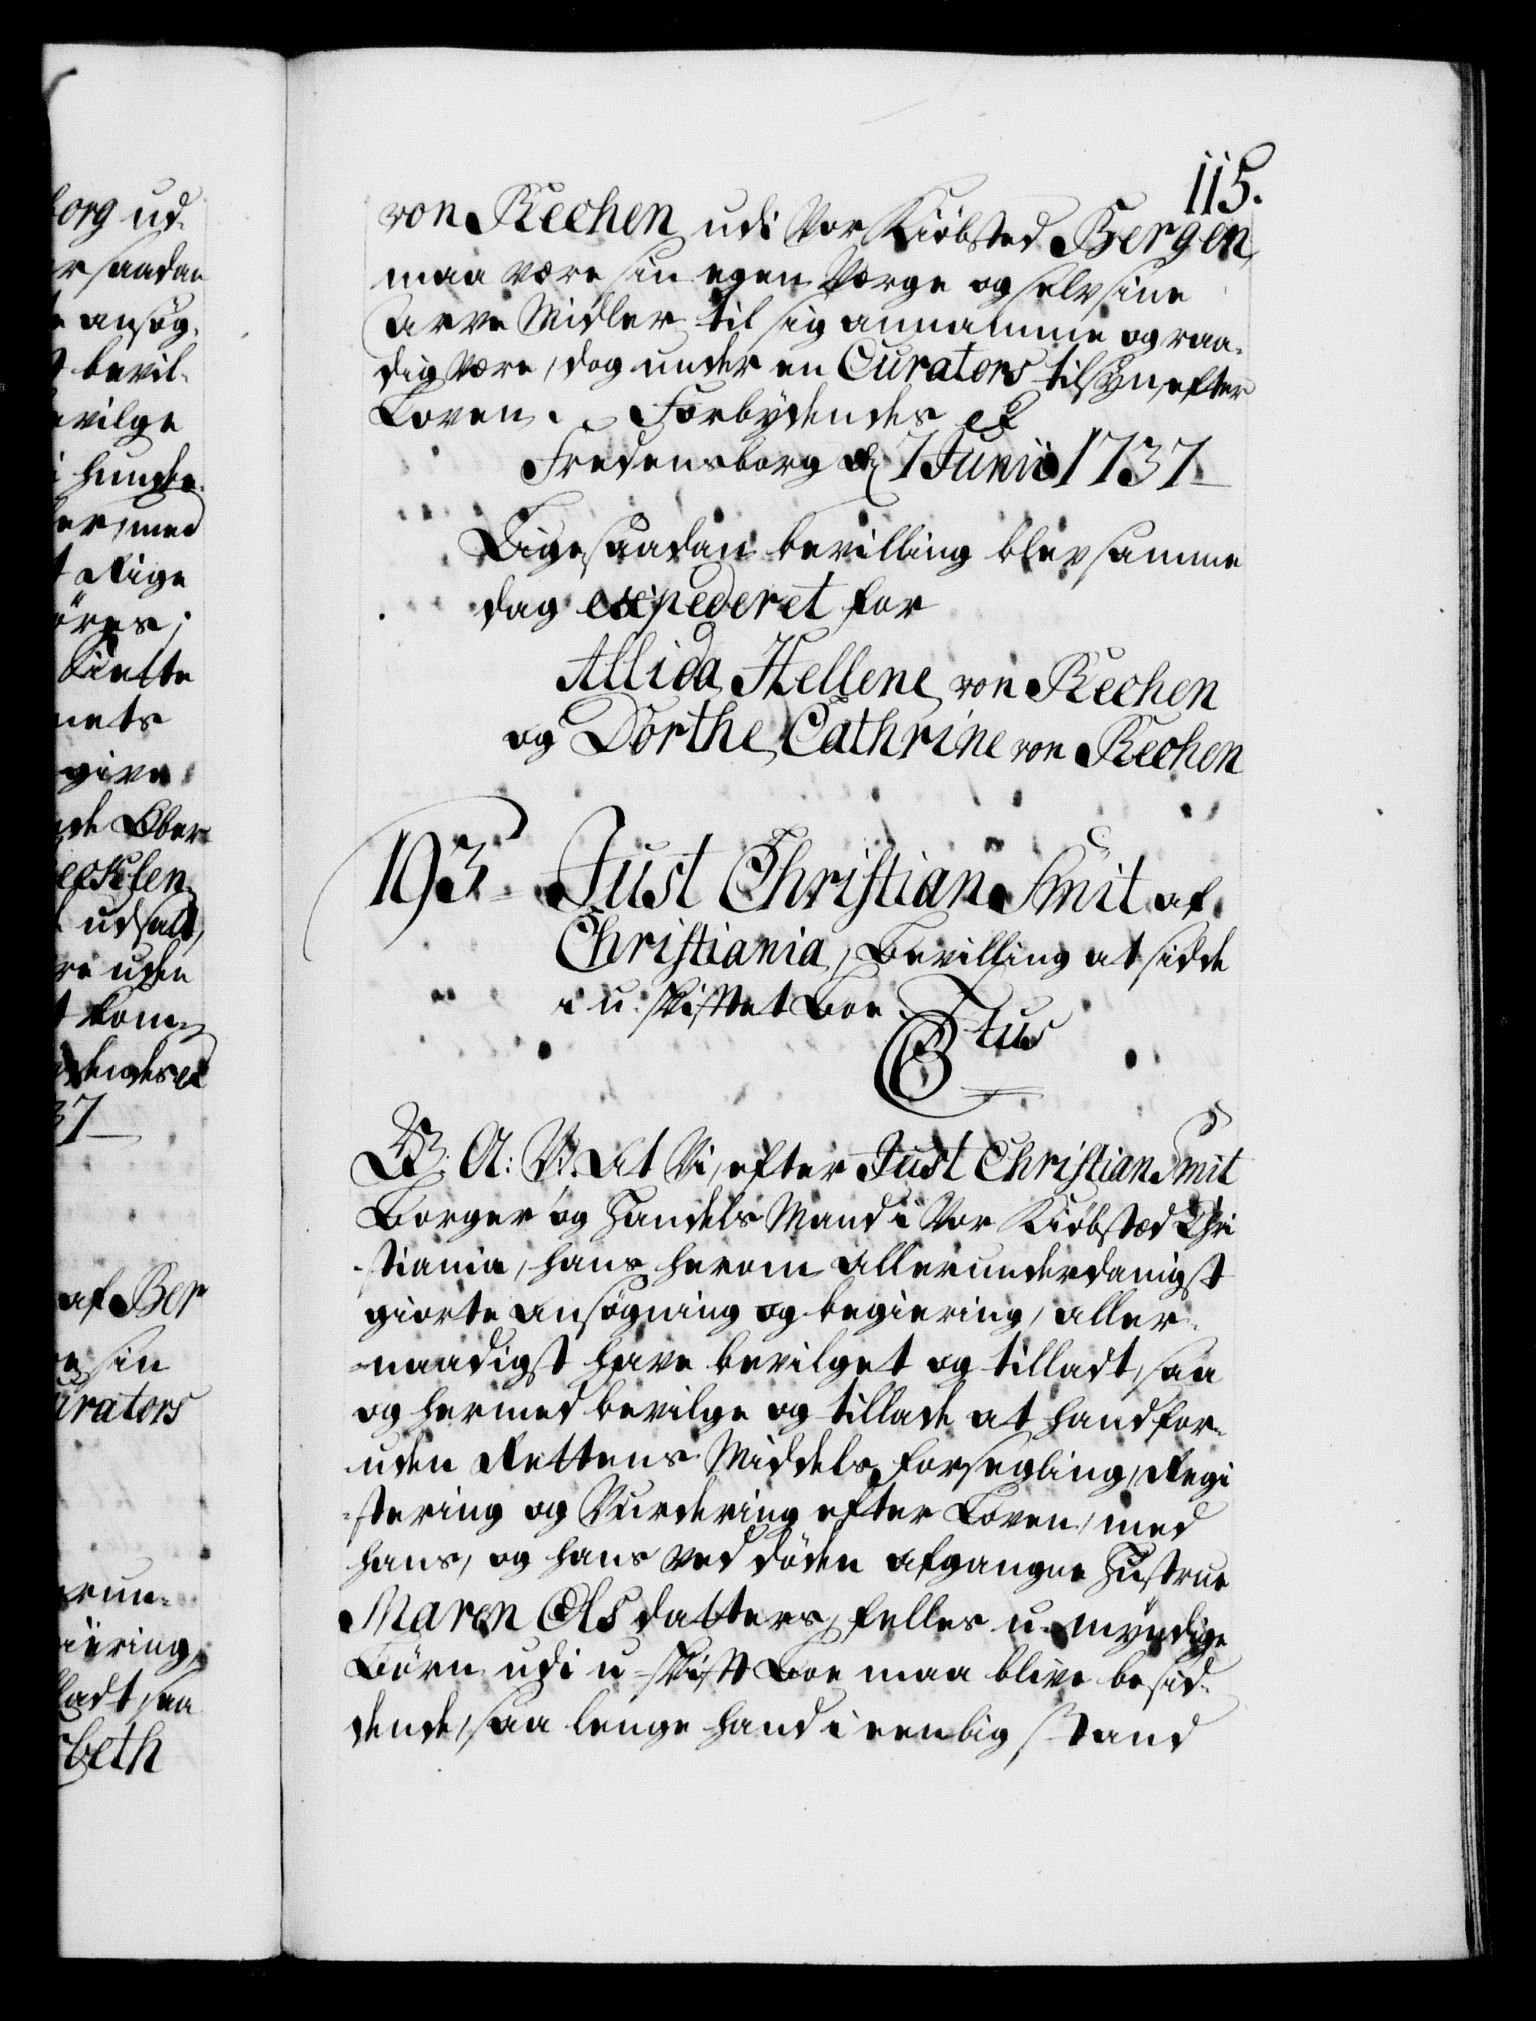 115.
von Rechen udi Vor Kiöbsted Bergen,
maa være sin egen Værge og selv sine
Arve Midler til sig annamme og raa-
dig være, dog under en Curators tilsyn, efter
Loven. Forbydendes &
Fredensborg d: 7 Junii 1737
Lige saadan bevilling blev samme
dag expederet for
Allida Hellene von Rechen
og Dorthe Cathrine von Rechen
193 Just Christian Smit af
Christiania, Bevilling at sidde
i u-skiftet Boe.
C6tus
G. A: V. At Vi, efter Just Christian Smit
Borger og Handels Mand i Vor Kiöbsted Chri
-stiania, hans herom allerunderdanigst
giorte ansögning og begiering, aller-
-naadigst have bevilget og tilladt, saa
og hermed bevilge og tillade at hand for-
uden Rettens Middels forsegling, Regi
-stering og Vurdering efter Loven, med
hans, og hans ved döden afgangne Hustrue
Maren Olsdatters, felles u-myndige
Börn udi u-skift Boe maa blive besid-
dende, saa lenge hand i eenlig stand
org ud-
r saadan
ansög-
bevil-
evilge
i hunde
er, med
Rige
öres;
Kiette
nets
give
de Ober
ecksen
udsatt,
re uden
kom-
dendes &
37
af Ber
e sin
urators
run-
iering
ladt, saa
beth